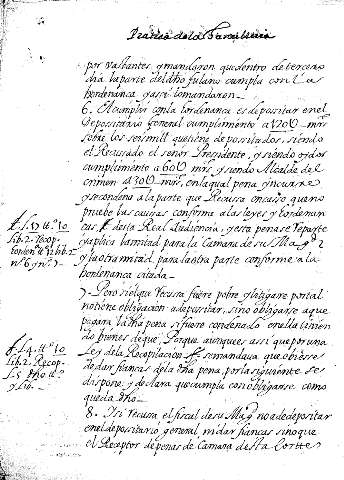 Practica de la
por bastantes, y mandaron que dentro de tercero
dia la parte del dho fulano cumpla con las
hordenança y assi lo mandaron.
6. El cumplir con la hordenança es depositar en el
Depositario General cumplimento a 1200 mrs
sobre los seis mill que tiene depositados, siendo
el Recusado el señor Presidente, y siendo oydor
cumplimento a 600 mrs y siendo Alcalde del
crimen a 300 mrs, en la qual pena yncurre
y se condena a la parte que Recusa en caso que no
pruebe las causas conforme a las leyes y hordenan
cas desta Real Audiencia, y esta pena se Reparte
y aplica la mitad para la Camara de su Magd
y la otra mitad para la otra parte conforme a la
hordenança citada.
7. Pero si el que recusa fuere pobre y litigare por tal
no tiene obligación a depositar, sino obligarse a que
pagara la dha pena si fuere condenado en alla tenien
do bienes de que, Porque aunque es assi que por una
Ley de la Recopilación se mandava que obiese
de dar fianças de la dha pena, por la siguiente se
dispone, y declara que cumpla con obligarse como
queda dho
8. Y si recusa el fiscal de su Magd no a de depositar
en el depositario general, ni dar fianças sino que
el Receptor de penas de Camara desta Corte
lib. 2. Recop.
n. 6. y n. 7
lib. 2. Recop.
L. 5. dho tt.
y lib.